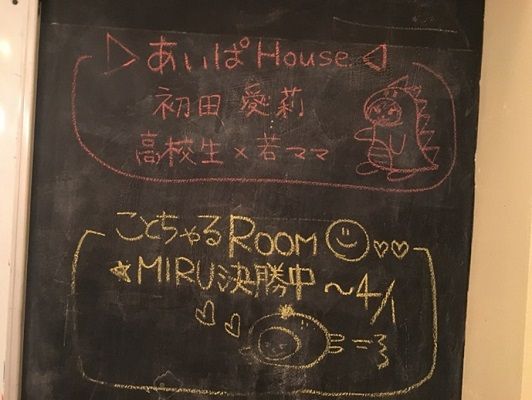 ▷あいぱHouse◁
初田 愛莉
高校生×若ママ
ことちゃるROOM
☆MIRU決勝中 ~4/1